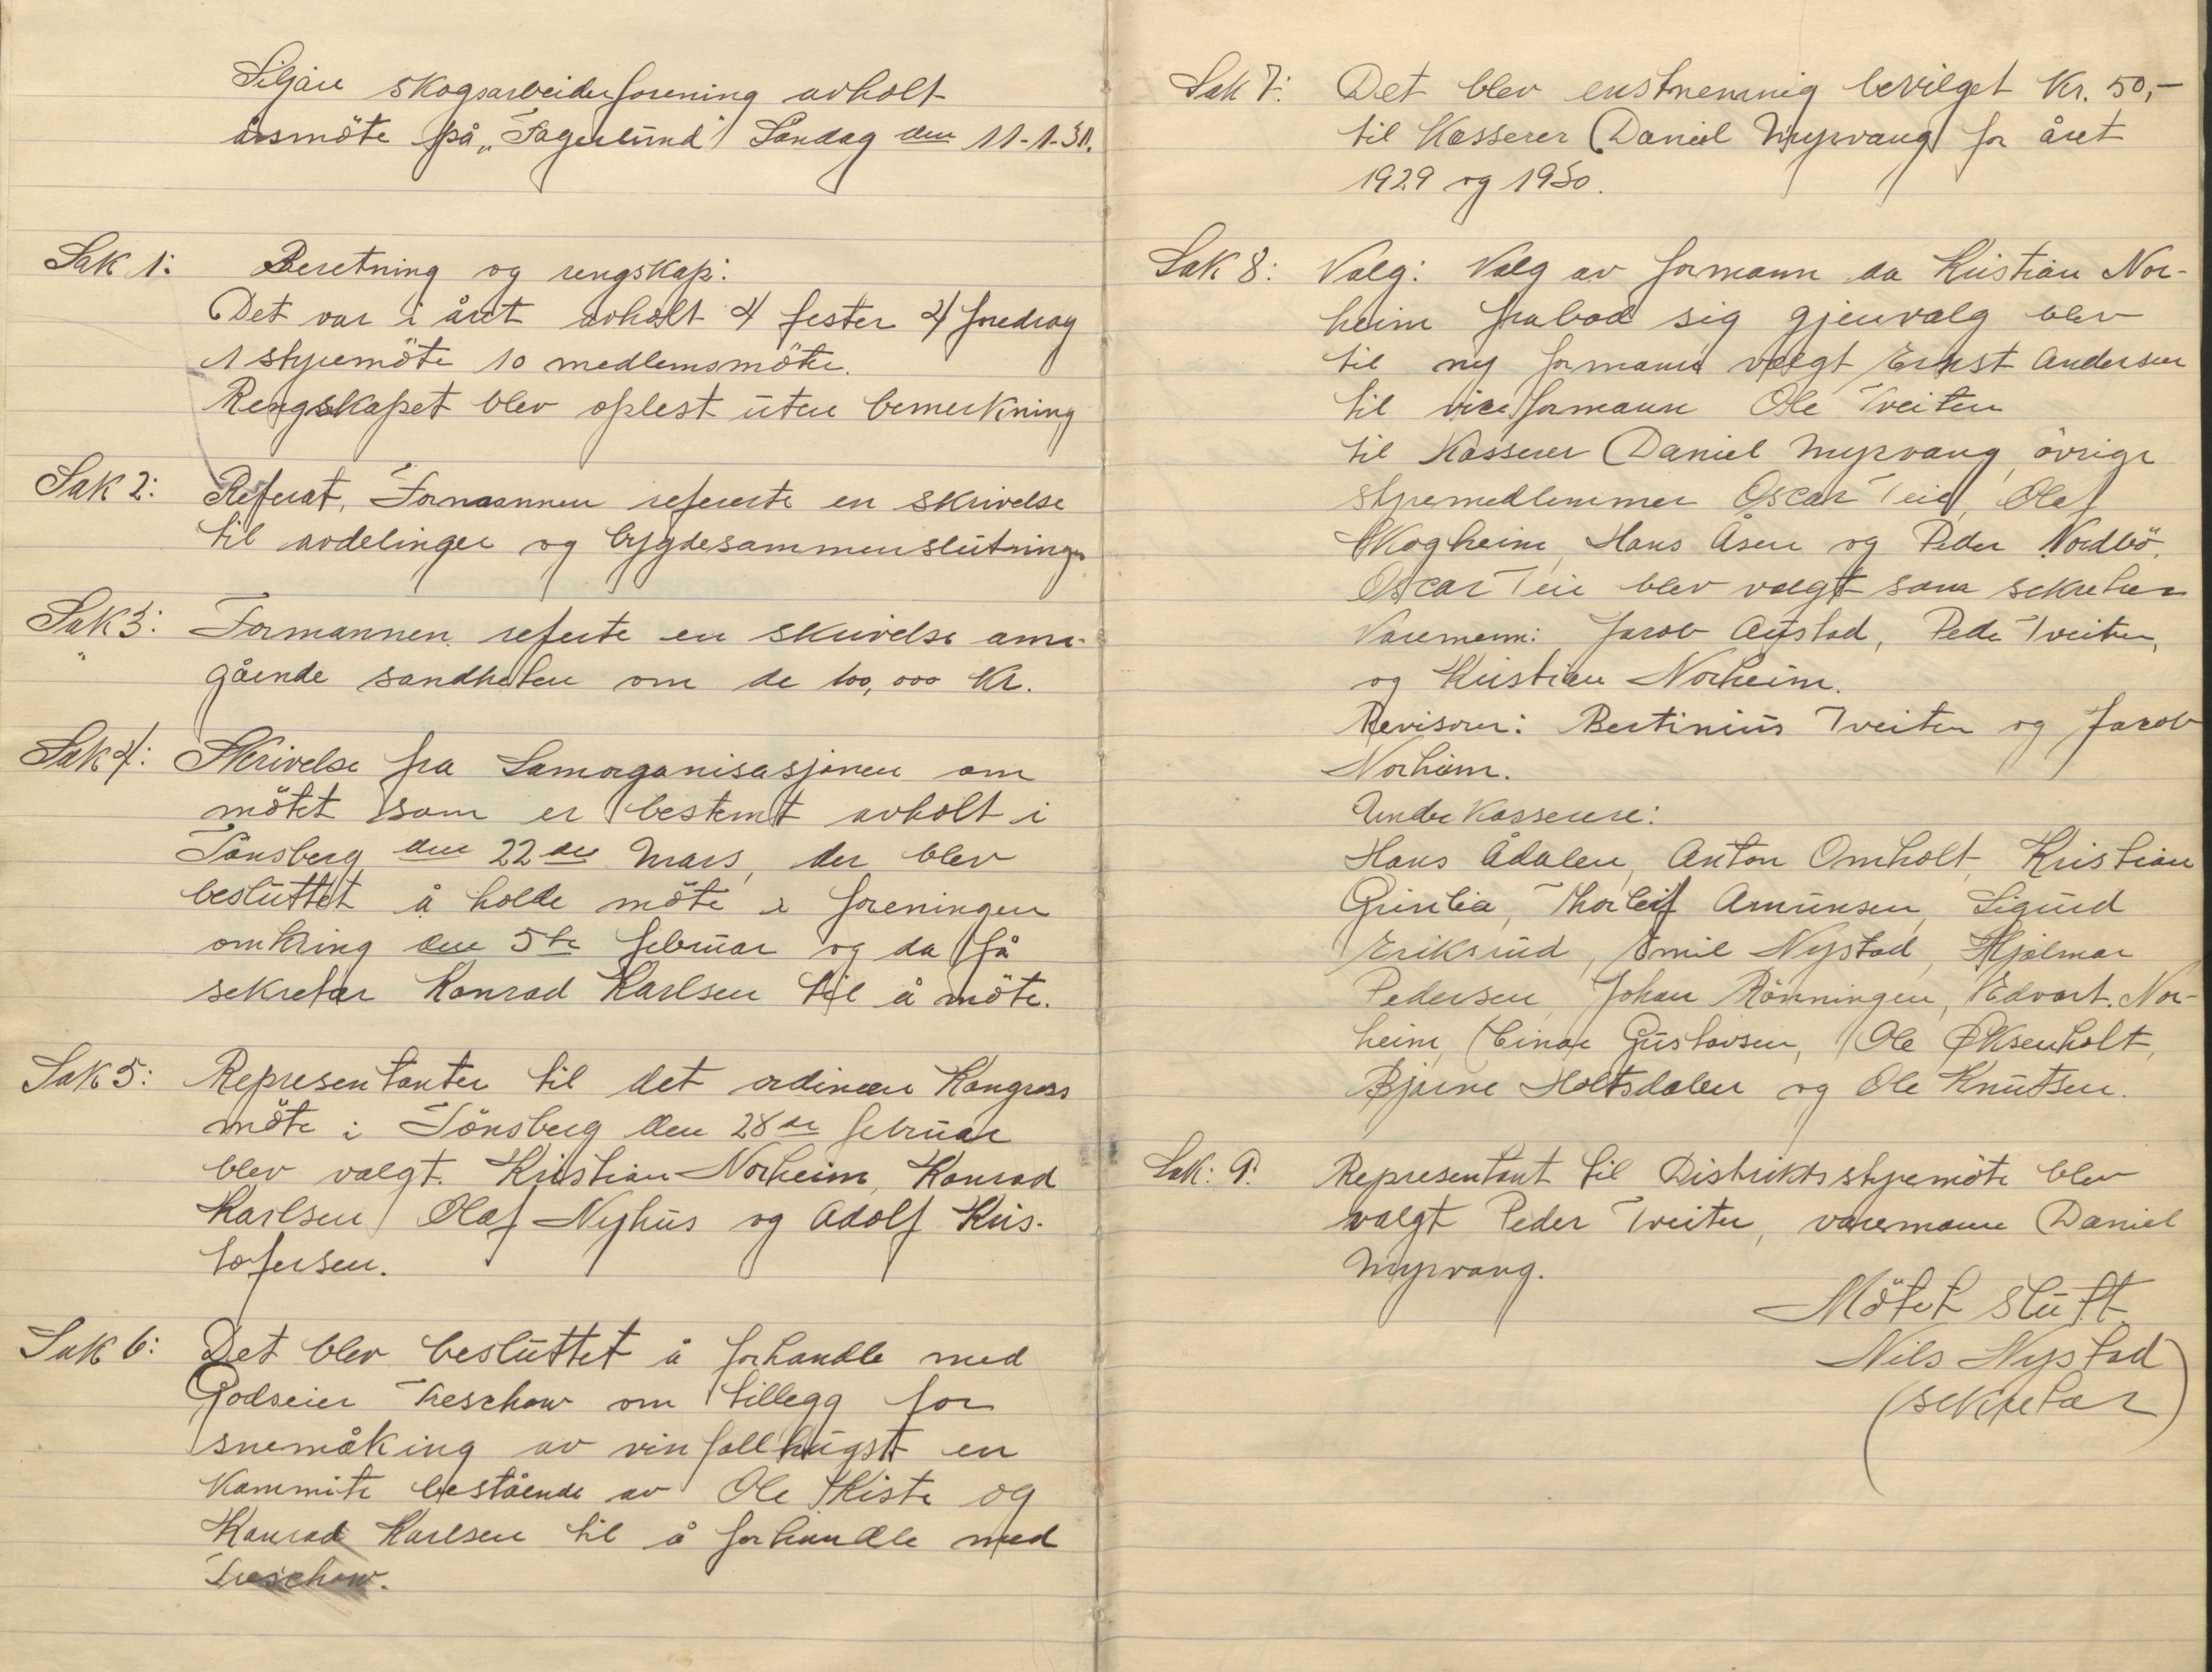 Siljan skogsarbeiderforening avholt
årsmöte på „Fagerlund" Söndag den 11-1-31.
Sak 1: Beretning og rengskap:
Det var i året avholt 4 fester 4 foredrag
1 styremöte 10 medlemsmöte.
Rengskapet blev oplest uten bemerkning
Sak 2: Referat, Formannen refererte en skrivelse
til avdelinger og bygdesammenslutninger
Sak 3: Formannen referte en skrivelse am-
gående sandheten om de 100,000 Kr.
Sak 4: Skrivelse fra Samorganisasjonen om
mötet som er bestemt avholt i
Tönsberg den 22 de Mars, der blev
besluttet å holde möte i foreningen
omkring den 5te februar og da få
sekretær Konrad Karlsen til å möte.
Sak 5: Representanter til det ordinære Kongress
möte i Tönsberg den 28 de februar
blev valgt. Kristian Norheim, Konrad
Karlsen Olaf Nyhus og Adolf Kris-
tofersen.
Sak 6: Det blev besluttet å forhandle med
Godseier Treschow om tillegg for
snemåking av vinfallhugst en
Kommite bestående av Ole Kiste og
Konrad Karlsen til å forhandle med
Treschow.
Sak 7: Det blev enstnemmig bevilget Kr. 50,-
til Kasserer Daniel Myrvang for året
1929 og 1930.
Sak 8: Valg: Valg av formann da Kristian Nor-
heim frabad sig gjenvalg blev
til ny formann valgt Ernst Andersen
til viceformann Ole Tveiten
til Kasserer Daniel Myrvang, övrige
styremedlemmer Oscar Teie, Olaf
Skogheim, Hans Åsen og Peder Nordbö.
Oscar Teie blev valgt som sekretær
Varemenn: Jacob Austad, Peder Tveiten,
og Kristian Norheim.
Revisorer: Bertinius Tveiten og Jacob
Norheim.
Underkasserere:
Hans Ådalen, Anton Omholt, Kristian
Grinlia, Thorleif Amunsen, Sigurd
Eriksrud, Emil Nystad, Hjalmar
Pedersen, Johan Rönningen, Edvart Nor-
heim, Einar Gustavsen, Ole Øksenholt,
Bjarne Holtsdalen og Ole Knutsen.
Sak: 9: Representant til Distriktsstyremöte blev
valgt Peder Tveiten, varemann Daniel
Myrvang.
Mötet slutt.
Nils Nystad
(sekretær)